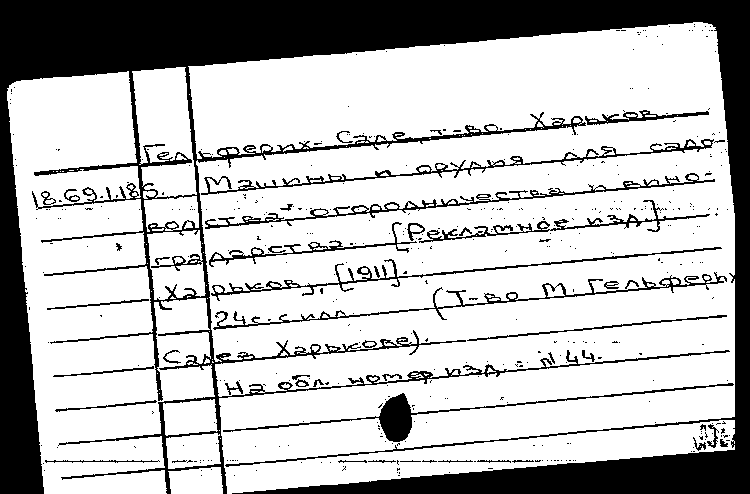 Гельферих-Саде, т-во. Харьков.
18.69.1.186. Машины и орудия для садо-
водства, огородничества и вино-
градарства. [Рекламное изд.].
[Харьков], [1911].
24с. с илл. (Т-во М. Гельферих
Саде в Харькове).
На обл. номер изд.: N 44.